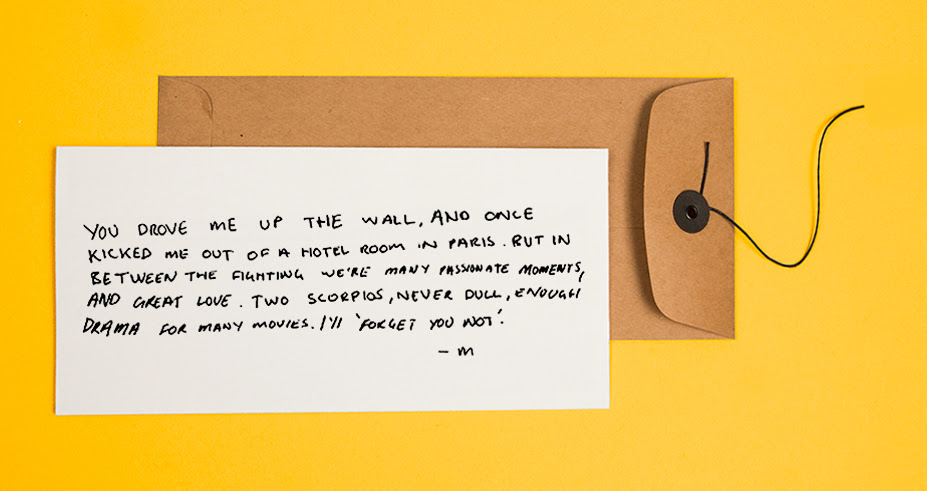 YOU DROVE ME UP THE WALL, AND ONCE
KICKED ME OUT OF A HOTEL ROOM IN PARIS. BUT IN
BETWEEN THE FIGHTING WE'RE MANY PASSIONATE MOMENTS,
AND GREAT LOVE. TWO SCORPIOS, NEVER DULL, ENOUGH
DRAMA FOR MANY MOVIES. I'll 'FORGET YOU NOT'.
- M